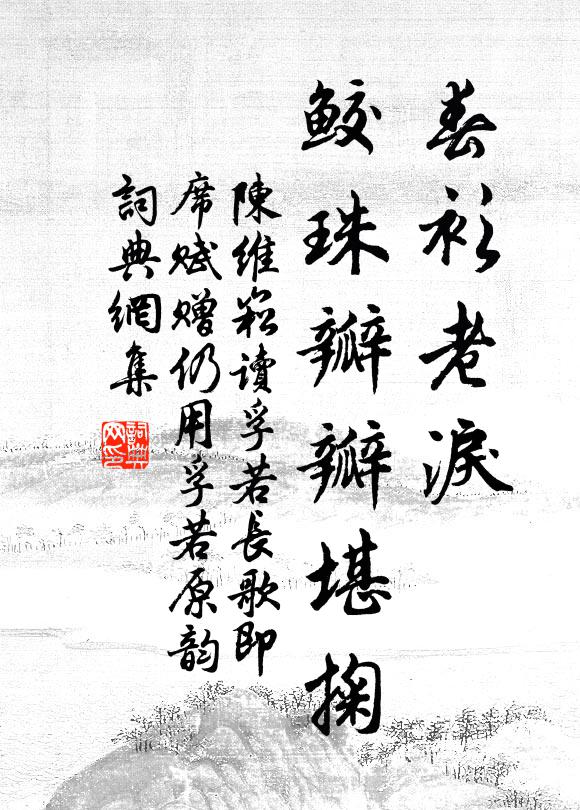 春衫老淚
鮫珠瓣瓣堪掬
陳維崧讀孚若長歌即
席賦贈仍用孚若原韵
詞典網集